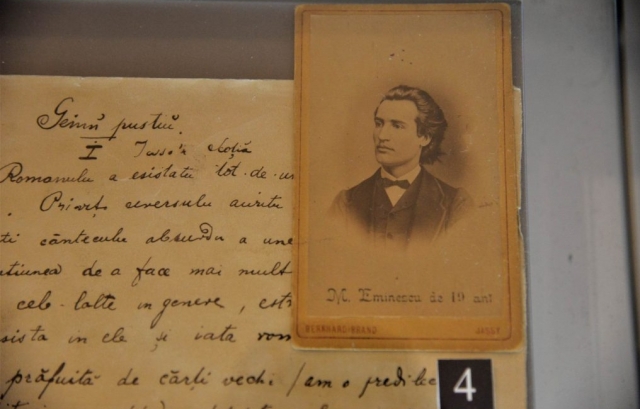 Geniŭ pustiŭ.
I
Romanulu a esistatu tot-de-un
ti cânteculu absurdu a une
tiunea de a face mai mult
cele-lalte in genere, est
sista in ele și iata rom
prăfuită de cărți vechi /am o predilec
M. Eminescu de 19 ani
BERNHARD BRAND JASSY
4